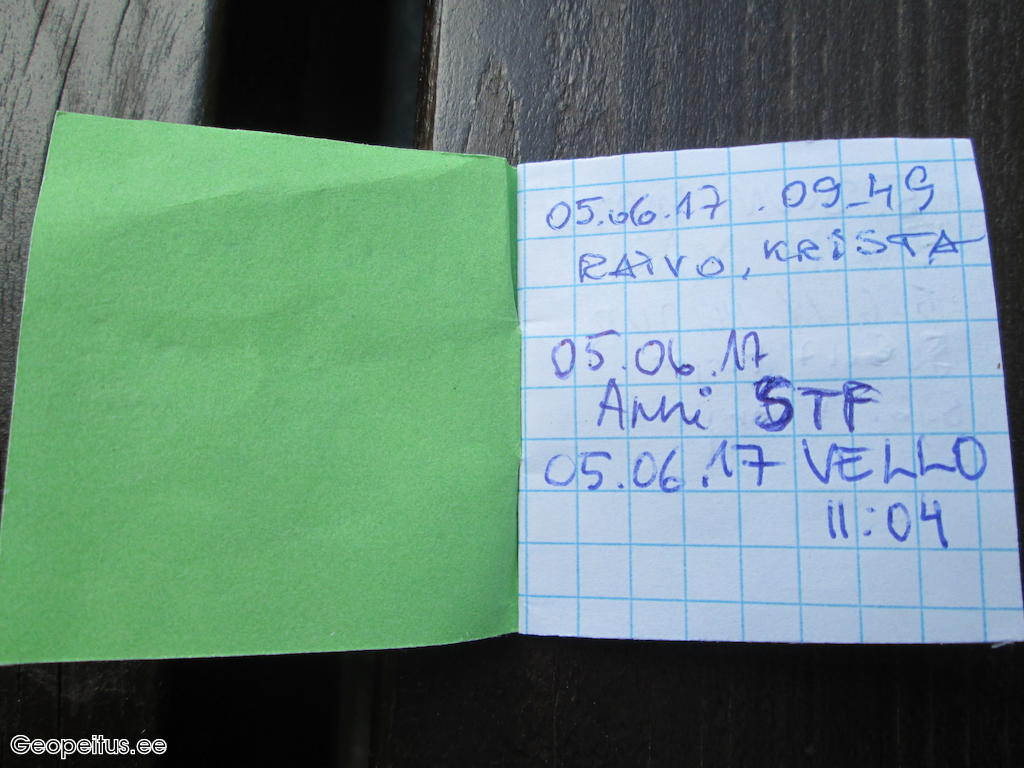 05.06.17 . 09.49
RAIVO, KRISTA
05.06.17
Anni STF
05.06.17 VELLO
11:04
Geopeitus.ee